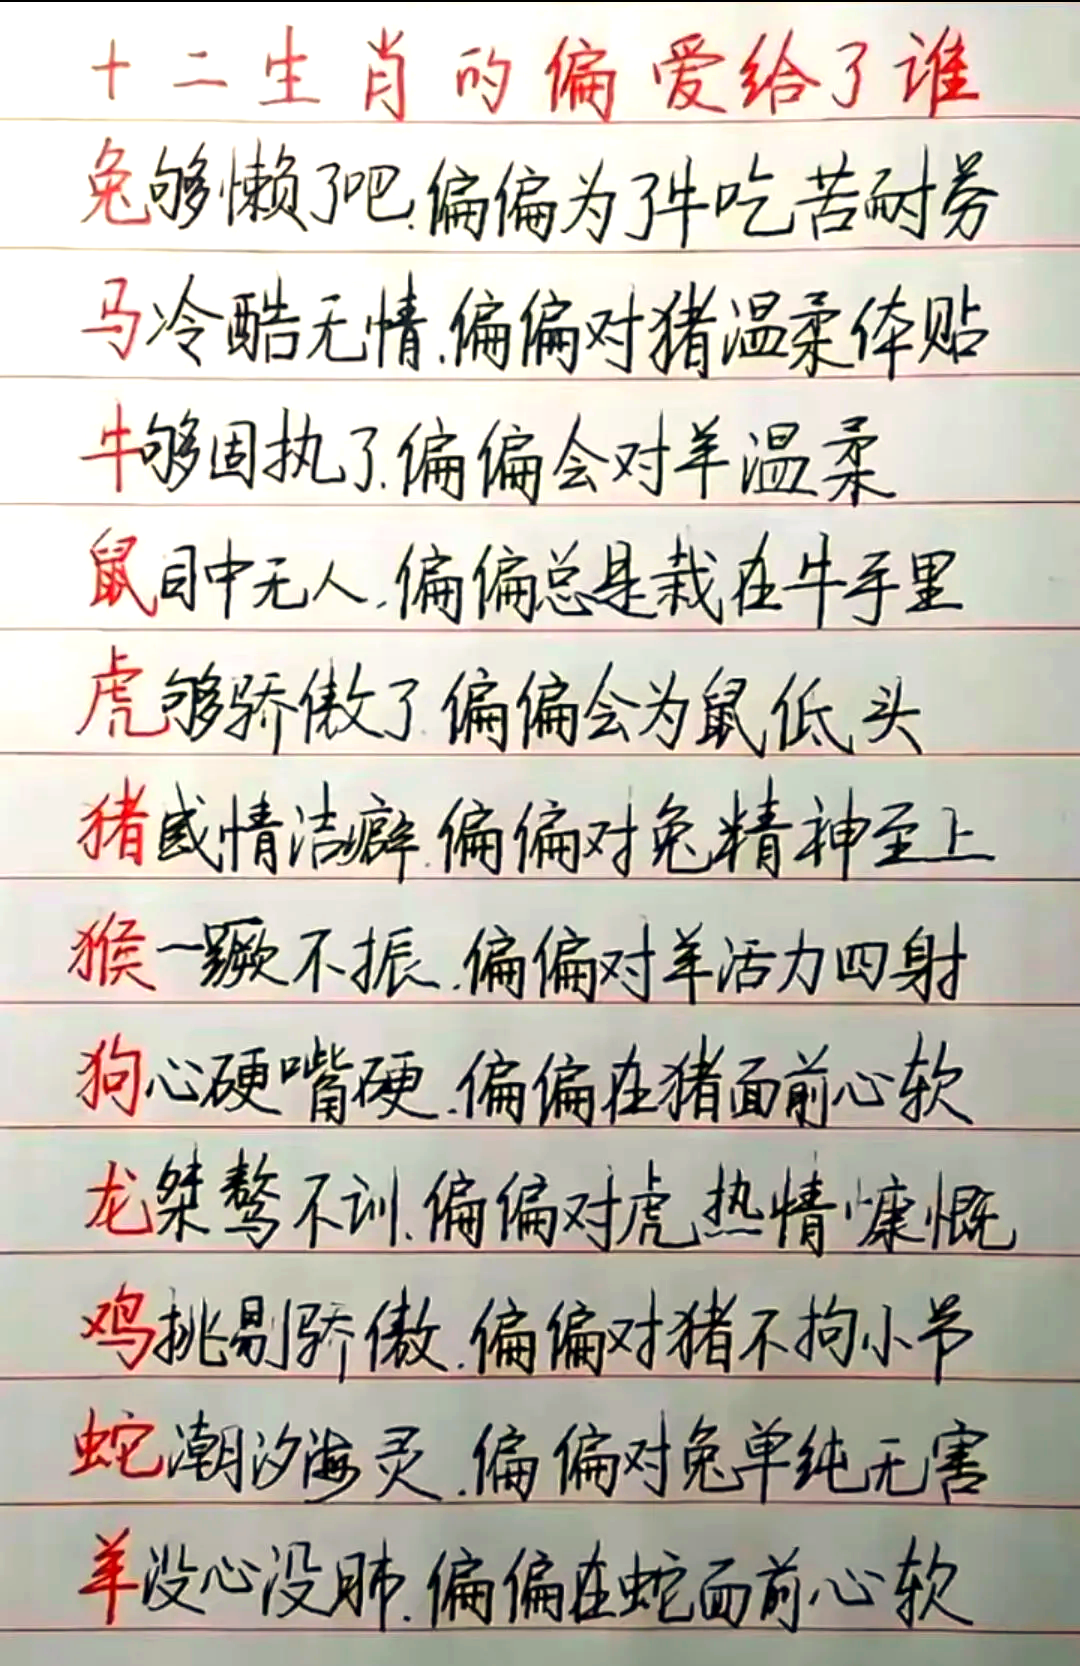 十二生肖的偏爱给了谁
兔够懒了吧.偏偏为了牛吃苦耐劳
马冷酷无情.偏偏对猪温柔体贴
牛够固执了.偏偏会对羊温柔
鼠目中无人.偏偏总是栽在牛手里
虎够骄傲了.偏偏会为鼠低头
猪感情洁癖.偏偏对兔精神至上
猴一蹶不振.偏偏对羊活力四射
狗心硬嘴硬.偏偏在猪面前心软
龙桀骜不训.偏偏对虎热情慷慨
鸡挑剔骄傲.偏偏对猪不拘小节
蛇潮汐海灵.偏偏对兔单纯无害
羊没心没肺.偏偏在蛇面前心软